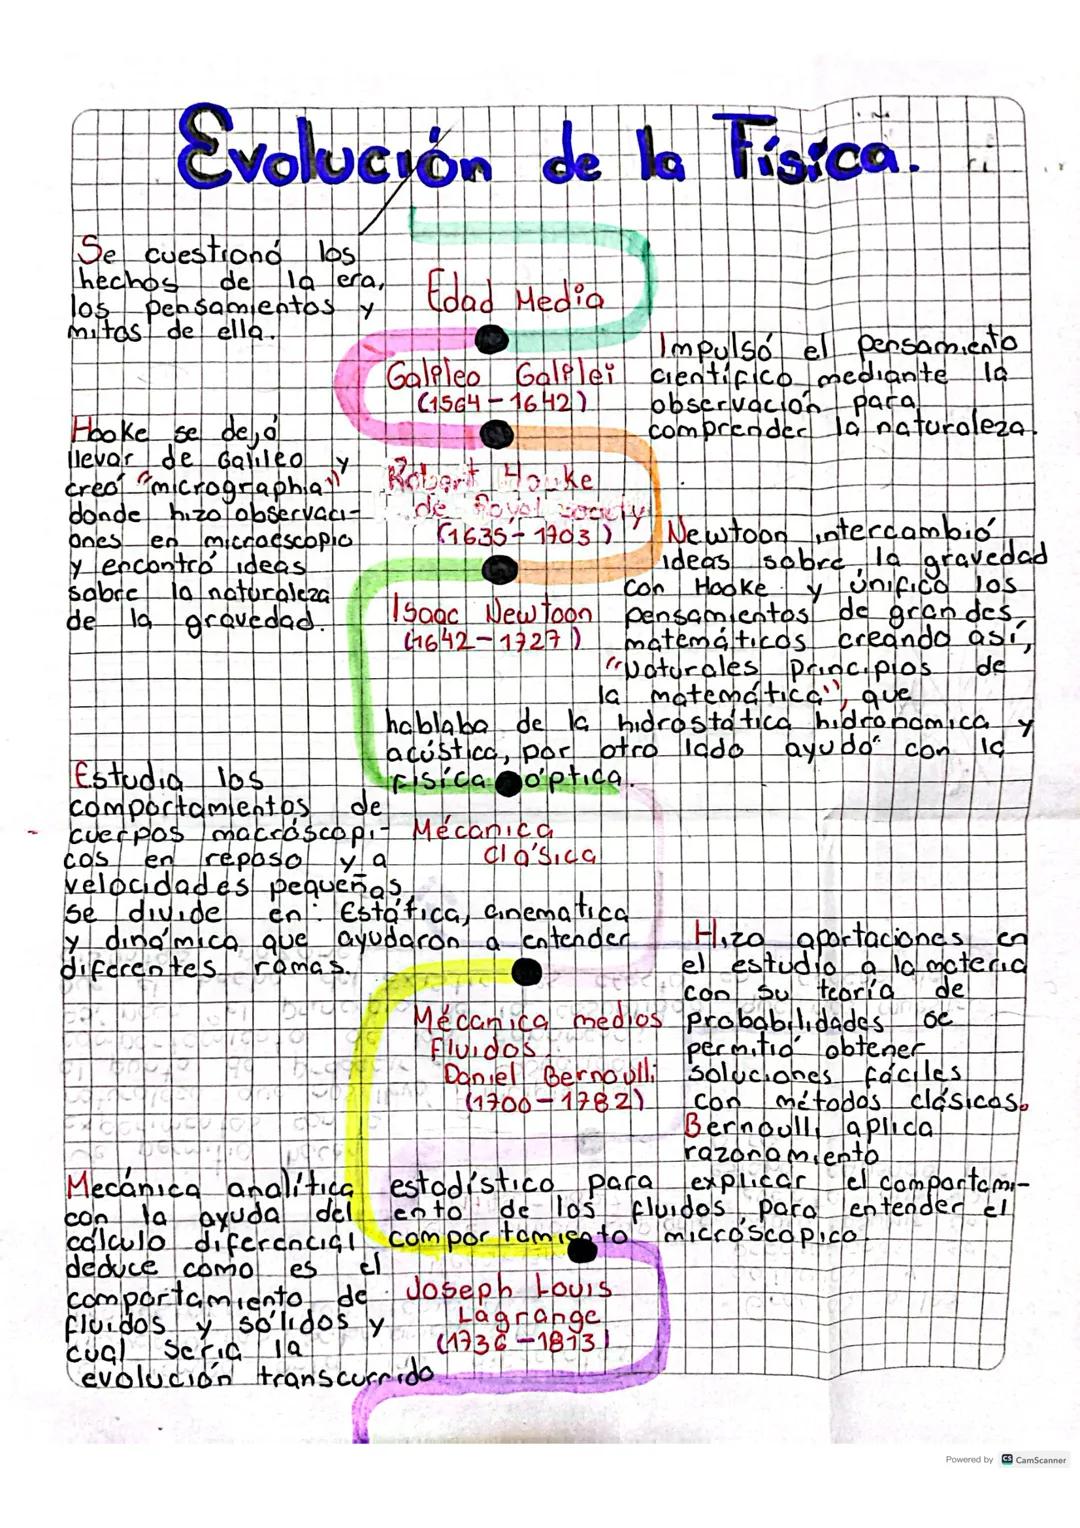 Evolución de la Física.
Se cuestionó los
hechos de la era,
los pensamientos y
mitos de ella.
Edad Media
Impulsó el pensamiento
científico mediante la
observación para
comprender la naturaleza.
Galileo Galilei
(1564-1642)
Hooke se dejó
llevar de Galileo y
creó "micrographia"
donde hizo observaci-
ones en microescopio
y encontró ideas
sobre la naturaleza
de la gravedad.
Robert Hooke
de Royal society
(1635-1703)
Newtoon intercambió
ideas sobre la gravedad
con Hooke y únifico los
pensamientos de grandes
matemáticos creando así,
"Naturales principios de
la matemática", que
hablaba de la hidrostática hidronamica y
acústica, por otro lado ayudó con la
física óptica.
Isaac Newtoon
(1642-1727)
Estudia los
comportamientos de
cuerpos macróscopi-
cos en reposo y a
velocidades pequeñas
se divide en: Estática, cinematica
y dinámica que ayudaron a entender
diferentes ramas.
Mécanica
clásica
Hizo aportaciones en
el estudio a la materia
con su teoría de
probabilidades se
permitió obtener
soluciones fáciles
con métodos clásicos.
Bernoulli aplica
razonamiento
estadístico para explicar el comportami-
ento de los fluidos para entender el
comportamiento micróscopico.
Mécanica medios
Fluidos.
Daniel Bernoulli
(1700-1782)
Mecánica analítica
con la ayuda del
cálculo diferencial
deduce como es el
comportamiento de
fluidos y sólidos y
cual sería la
evolución transcurrido
Joseph Louis
Lagrange
(1736-1813)
Powered by CS CamScanner